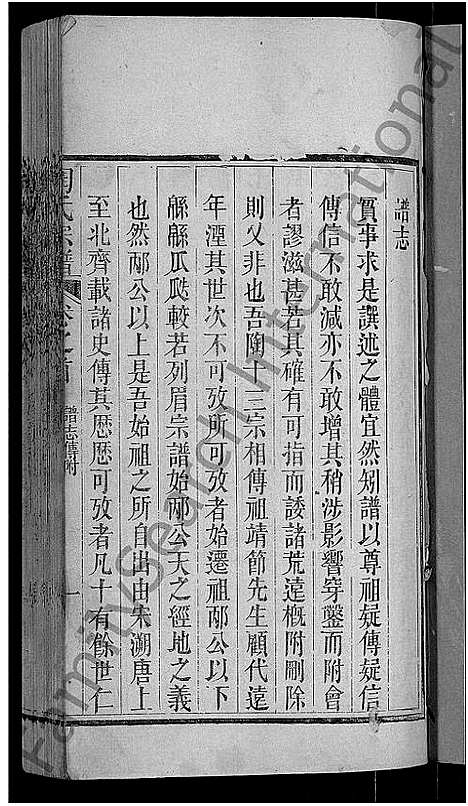 譜志
實事求是譔述之體宜然矧譜以尊祖疑傳疑信
傳信不敢減亦不敢增其稍涉影響穿鑿而附會
者謬滋甚若其確有可指而諉諸荒遠概附刪除
則又非也吾陶十三宗相傳祖靖節先生顧代遠
年湮其世次不可攷所可攷者始遷祖邴公以下
緜緜瓜瓞較若列眉宗譜始邴公天之經地之義
也然邴公以上是吾始祖之所自出由宋溯唐上
至北齊載諸史傳其歷歷可攷者凡十有餘世仁
陶氏宗譜 卷之首 譜志舊附 一
FamilySearch International